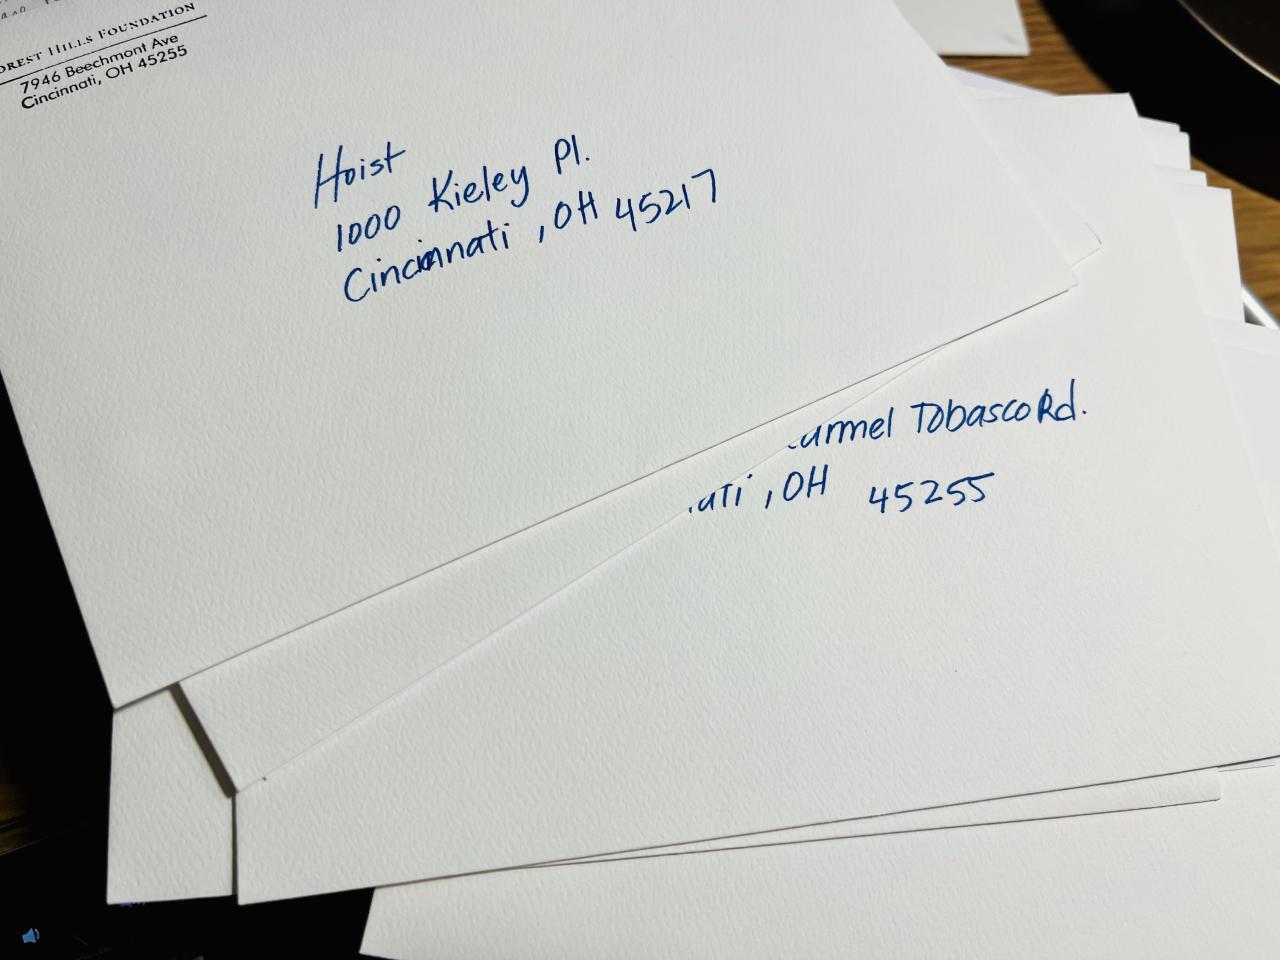 FOREST HILLS FOUNDATION
7946 Beechmont Ave
Cincinnati, OH 45255
Hoist
1000 Kieley Pl.
Cincinnati, OH 45217
armel Tobasco Rd.
ati, OH 45255